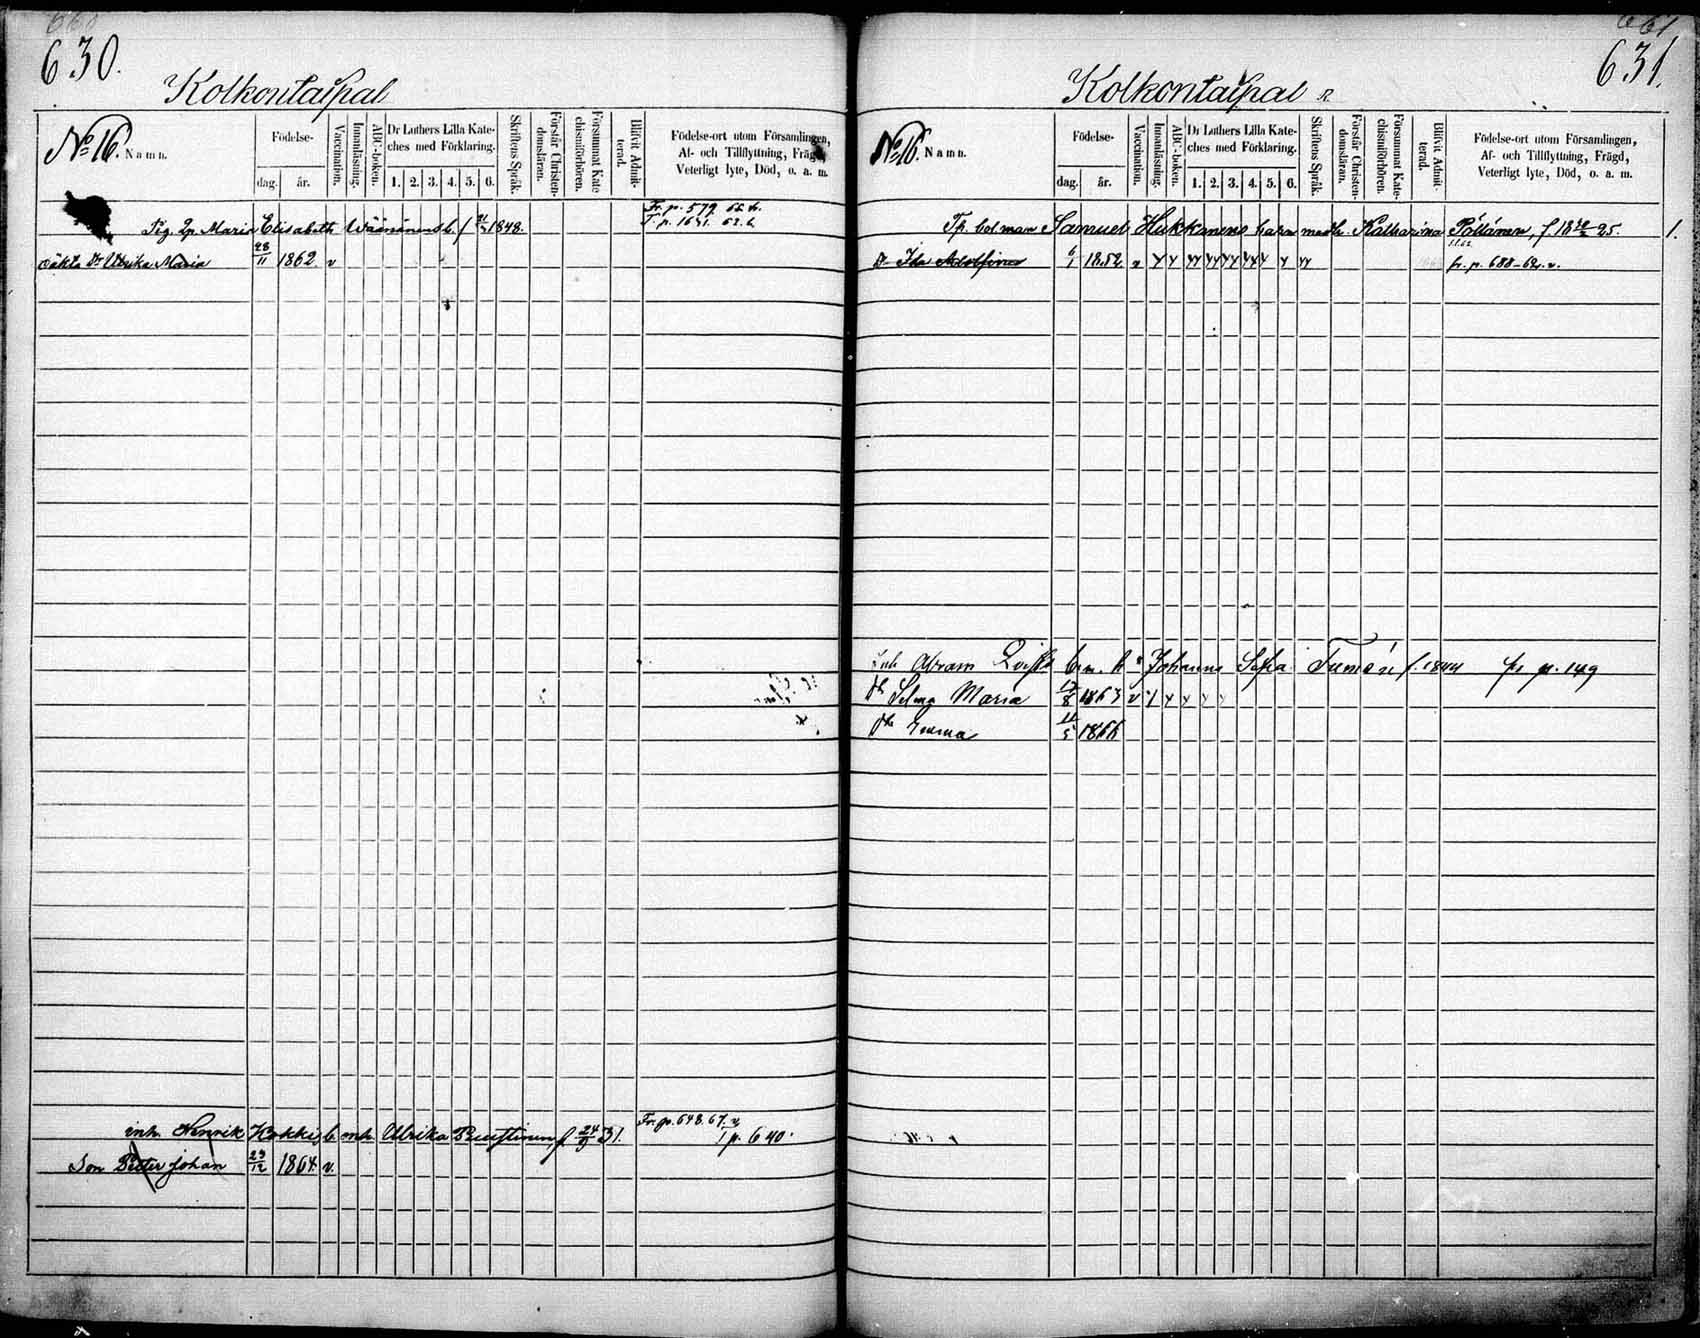 630.
Kolkontaipal
No 16. Namn.
Födelse-
dag. år.
Vaccination.
Innanläsning.
ABC-boken.
Dr Luthers Lilla Kate-
ches med Förklaring.
1. 2. 3. 4. 5. 6.
Skriftens Språk.
Förstår Christen-
domsläran.
Försummat Kate
chismiförhören.
Blifvit Admit-
terad.
Födelse-ort utom Församlingen,
Af- och Tillflyttning, Frägd,
Veterligt lyte, Död, o. a. m.
Fr. p. 579
Pig. Maria Elisabeth Wäänänens b. f 1848. T. p.
oäkta Dr Ulrika Maria 28/11 1862 v
Fr. p. 648. 67.
inh. Henrik Kokki b mh. Ulrika f 24/9 31. p. 640.
Son Petter Johan 23/12 1864. v.
661
631.
Kolkontaipal
No 16. Namn.
Födelse-
dag. år.
Vaccination.
Innanläsning.
ABC-boken.
Dr Luthers Lilla Kate-
ches med Förklaring.
1. 2. 3. 4. 5. 6.
Skriftens Språk.
Förstår Christen-
domsläran.
Försummat Kate-
chismiförhören.
Blifvit Admit-
terad.
Födelse-ort utom Församlingen,
Af- och Tillflyttning, Frägd,
Veterligt lyte, Död, o. a. m.
Tp. bolman Samuel Hukkanens barn med h. Katharina Pöllänen, f. 18 25. 1.
1862
Dr Ida Adolfina 6/1 1852 v fr. p. 688-62. v.
Inh Abram Qvist b m. h Johanna Sofia f. 1844 fr p. 149
dtr Selma Maria 17/8 1863 v
dtr Emma 11/5 1866